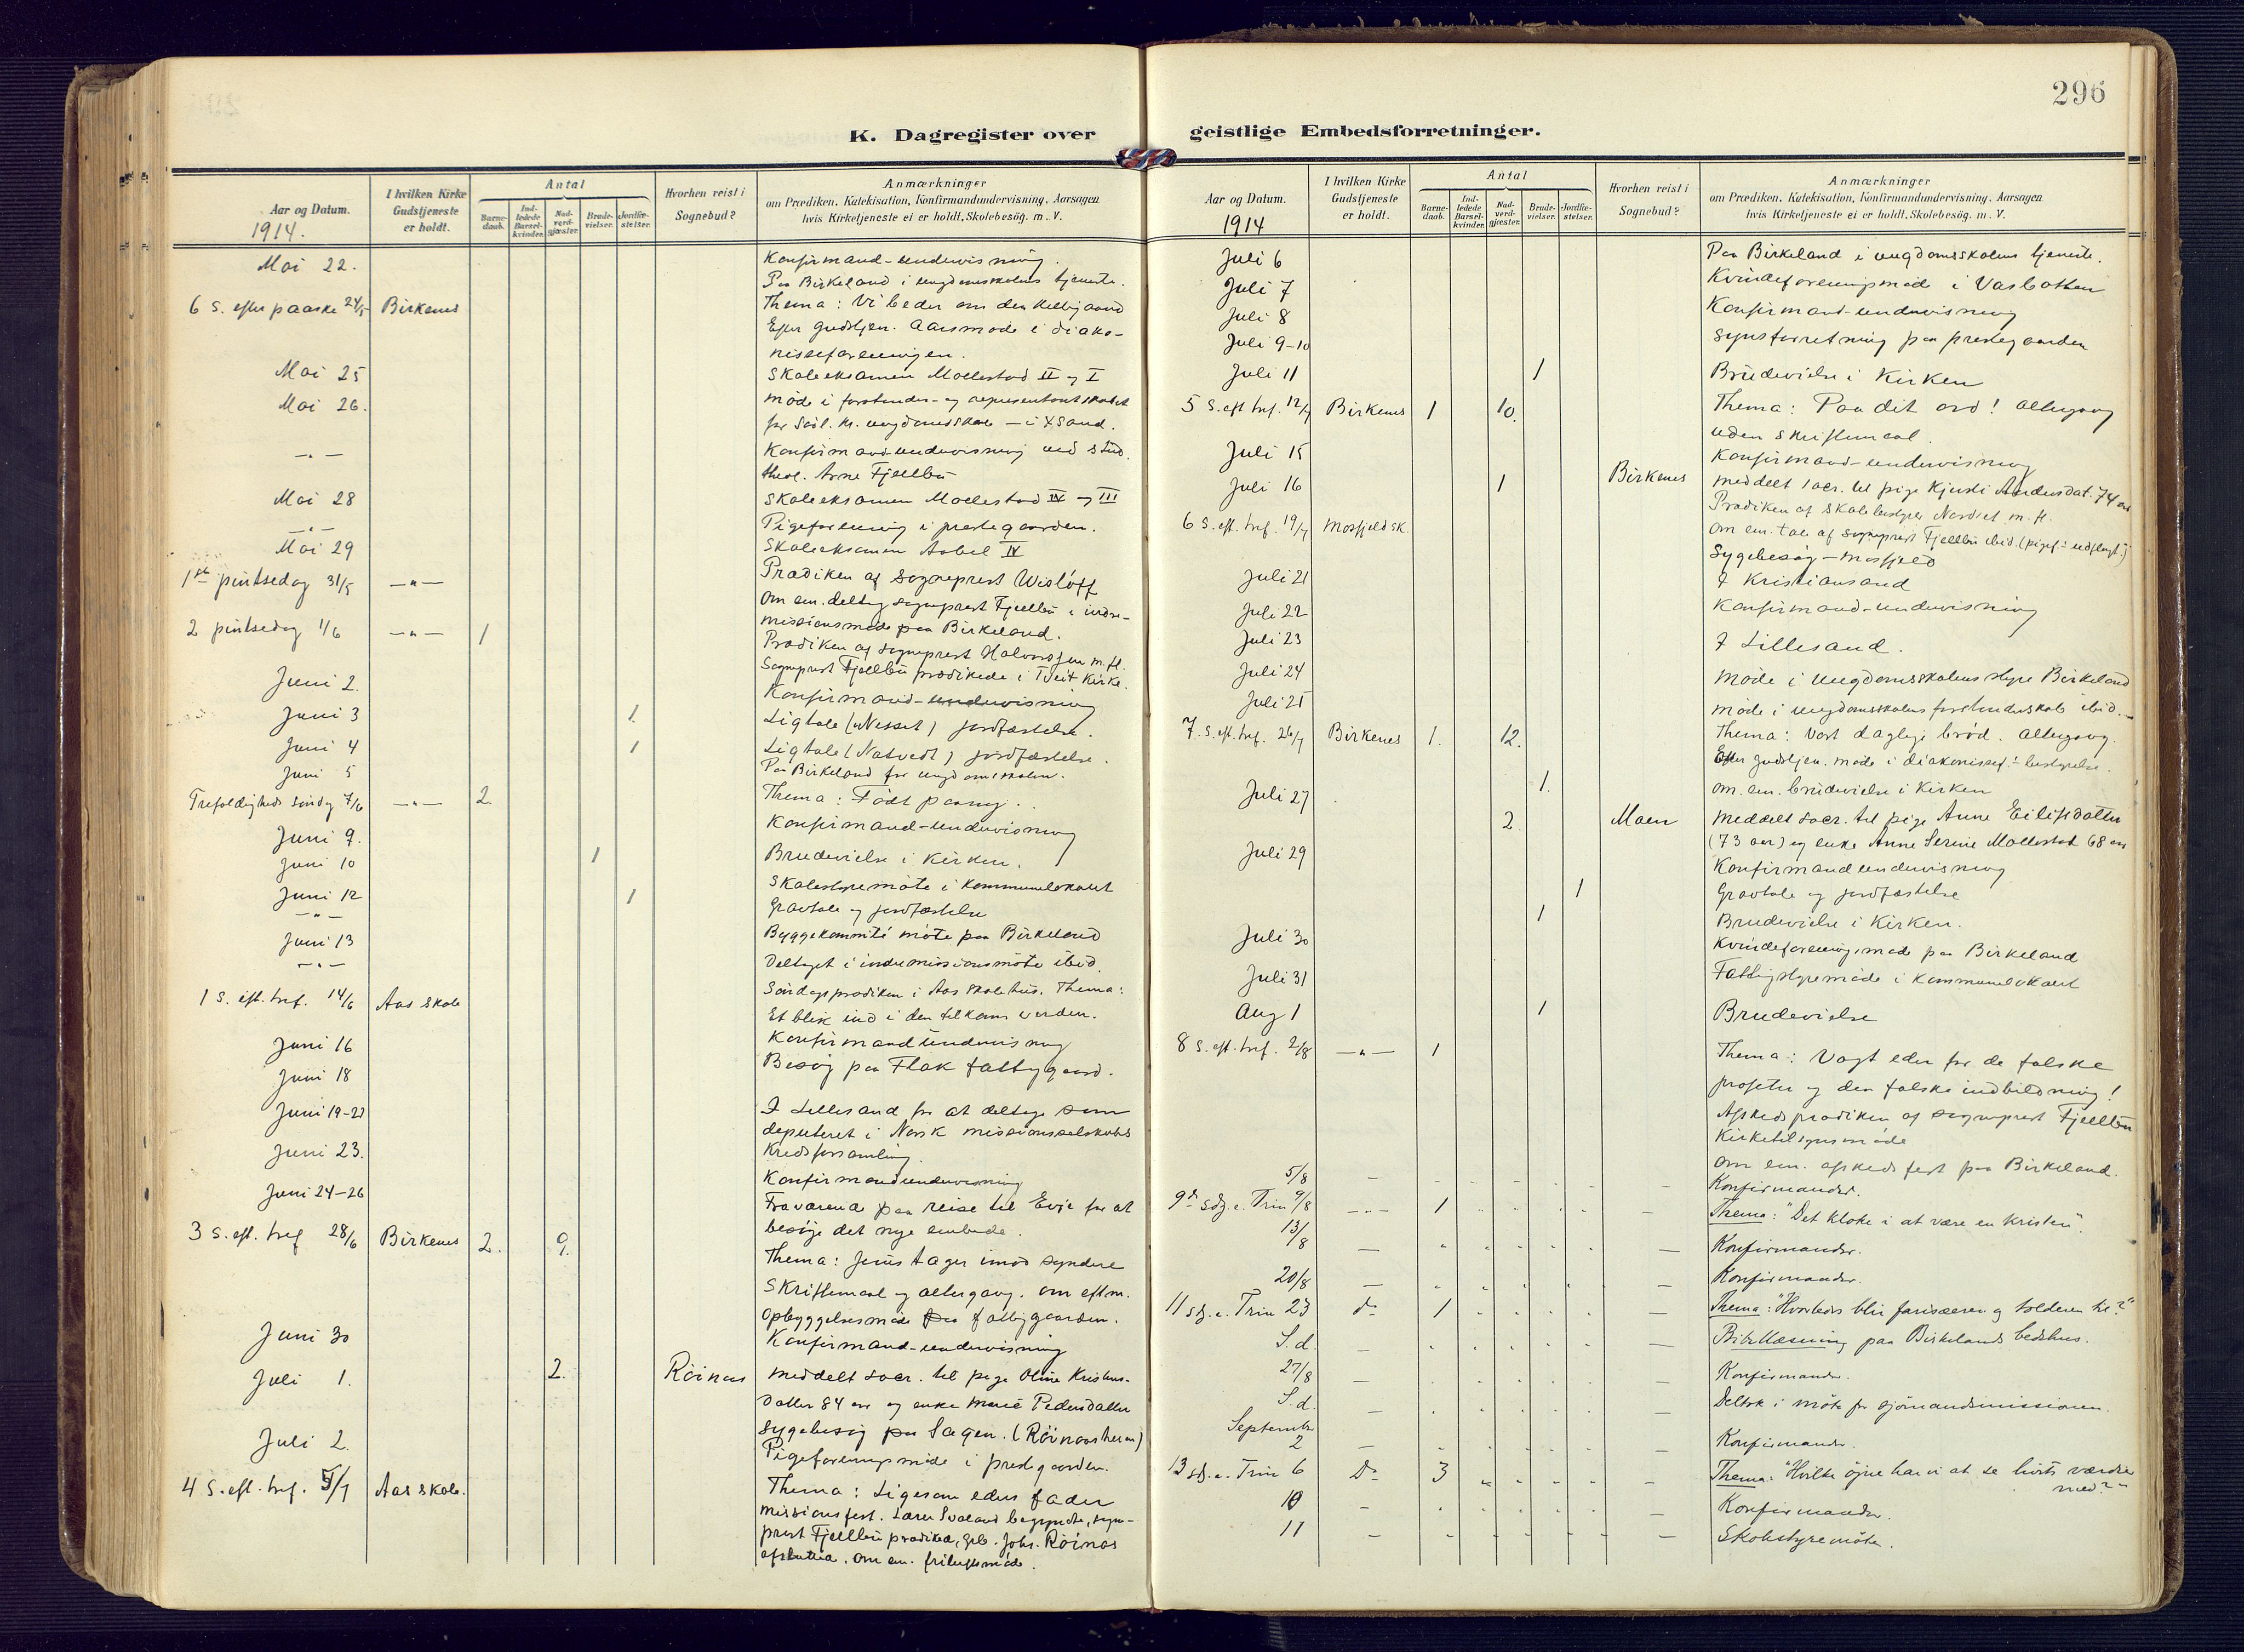 296
K. Dagregister over
geistlige Embedsforretninger.
Aar og Datum.
1914.
I hvilken Kirke
Gudstjeneste
er holdt.
Antal
Barne-
daab.
Ind-
ledede
Barsel-
kvinder.
Nad-
verd-
gjæster.
Brude-
vielser.
Jordfæ-
stelser.
Hvorhen reist i
Sognebud?
Anmærkninger
om Prædiken, Katekisation, Konfirmandundervisning, Aarsagen
hvis Kirketjeneste ei er holdt, Skolebesøg. m. V.
Mai 22. Konfirmand-undervisning.
Paa Birkeland i ungdomsskolens tjeneste.
6 S. efter paaske 24/5 Birkenes Thema: Vi beder om den Helligaand
Efter gudstjen. Aarsmøde i diako-
nisseforeningen.
Mai 25 Skoleeksamen Mollestad II og I
Mai 26. Møde i forstander- og representantskabet
for Sødl. kr. ungdomsskole — i X Sand.
— " — Konfirmandundervisning ved stud.
theol. Arne Fjellbu
Mai 28 Skoleeksamen Mollestad IV og III
— " — Pigeforening i prestegaarden.
Mai 29 Skoleeksamen Aabel IV
1ste pintsedag 31/5 — " — Prædiken af Sogneprest Wisløff
Om em. deltog sogneprest Fjellbu i indre-
missionsmøde paa Birkeland.
2 pintsedag 1/6 — " — 1 Prædiken af sogneprest Halvorsen m. fl.
Sogneprest Fjellbu prædikede i Tveit Kirke.
Juni 2. Konfirmand-undervisning
Juni 3 1. Ligtale (Nesset) jordfæstelse.
Juni 4 1 Ligtale (Natvedt) jordfæstelse.
Juni 5 Paa Birkeland for ungdomsskolen.
Trefoldigheds søndag 7/6 — " — 2. Thema: Født paany.
Juni 9. Konfirmand-undervisning
Juni 10 1 Brudevielse i Kirken.
Juni 12 Skolestyremøte i Kommunelokalet
— " — 1 Gravtale og jordfæstelse
Juni 13 Byggekomité møte paa Birkeland
— " — Deltaget i indremissionsmøte ibid.
1 S. eft. tref. 14/6 Aas skole Søndagsprædiken i Aas skolehus. Thema:
Et blik ind i den tilkom. verden.
Juni 16 Konfirmandundervisning
Juni 18 Besøg paa Flak fattiggaard.
Juni 19-22 I Lillesand for at deltage som
deputeret i Norsk missionsselskabs
Kredsforsamling.
Juni 23. Konfirmandundervisning
Juni 24-26 Fraværende paa reise til Evje for at
besøge det nye embede.
3 S. eft. tref 28/6 Birkenes 2. 9. Thema: Jesus tager imod syndere
Skriftemaal og altergang. Om eftm.
opbyggelsesmøde paa fattiggaarden.
Juni 30 Konfirmand-undervisning
Juli 1. 2. Røinas meddelt sacr. til pige Oline Kristens-
datter 84 aar og enke Marie Pedersdatter
Sygebesøg paa Sagen. (Røinaasheia)
Juli 2. Pigeforeningsmøde i prestegaarden.
4 S. eft. tref. 5/7 Aas skole. Thema: Ligesom eders fader
Missionsfest. Lærer Svaland begyndte, sogne-
prest Fjellbu prædika, Grb. Johs. Røinas
afslutta. Om em. friluftsmøde.
Aar og Datum.
1914
I hvilken Kirke
Gudstjeneste
er holdt.
Antal
Barne-
daab.
Ind-
ledede
Barsel-
kvinder.
Nad-
verd-
gjæster.
Brude-
vielser.
Jordfæ-
stelser.
Hvorhen reist i
Sognebud?
Anmærkninger
om Prædiken, Katekisation, Konfirmandundervisning, Aarsagen
hvis Kirketjeneste ei er holdt, Skolebesøg. m. V.
Juli 6 Paa Birkeland i ungdomsskolens tjeneste.
Juli 7 Kvindeforeningsmøde i Vasbotten
Juli 8 Konfirmand-undervisning
Juli 9-10 Synsforretning paa prestegaarden
Juli 11 1 Brudevielse i Kirken
5 S. eft tref. 12/7 Birkenes 1 10. Thema: Paa dit ord! Altergang
uden skriftemaal.
Juli 15 Konfirmand-undervisning
Juli 16 1 Birkenes meddelt sacr. til pige Kjersti Andersdat. 74 aar
6 S. eft. tref. 19/7 Mosfjeld sk. Prædiken af Skolebestyrer Nordvet m. fl.
Om em. tale af sogneprest Fjellbu ibid. (pigef. udflugt)
Sygebesøg — Mosfjeld
Juli 21 I Kristiansand
Juli 22 Konfirmand-undervisning
Juli 23 I Lillesand.
Juli 24 Møde i Ungdomsskolens styre Birkeland
Juli 25 Møde i ungdomsskolens forstanderskab ibid.
7. S. eft. tref. 26/7 Birkenes 1. 12. Thema: Vort daglige brød. Altergang.
Efter gudstjen. møde i diakonissef. bestyrelse.
Juli 27 1. Om. em. brudevielse i Kirken
2 Moen Meddelt sacr. til pige Anne Eilifsdatter
(73 aar) og enke Anne Serine Mollestad 68 aar
Juli 29 Konfirmandundervisning
1 Gravtale og jordfæstelse
1 Brudevielse i Kirken.
Juli 30 Kvindeforeningsmøde paa Birkeland
Juli 31 Fattigstyremøde i Kommunelokalet
Aug 1 1 Brudevielse
8 S. eft. tref. 2/8 — " — 1 Thema: Vogt eder for de falske
profeter og den falske indbildning!
Afskedsprædiken af sogneprest Fjellbu
Kirketilsynsmøde
Om em. afskedsfest paa Birkeland.
5/8 — Konfirmander.
9de sdg. e. Trin 9/8 — " — 1 Thema: "Det kloke i at være en kristen".
13/8 — Konfirmander.
20/8 — Konfirmander.
11 sdg. e. Trin 23 do 1 Thema: "Hvorledes blir farisæeren og tolderen til?"
S. d. — Bibellæsning paa Birkelands bedehus.
27/8 — Konfirmander.
S. d. — Deltok i møte for sjømandsmissionen.
September
2 — Konfirmander.
13 sdg. e. Trin 6 Do 3 Thema: "Hvilke øine har vi at se livets værdier
med?"
10 — Konfirmander.
11 — Skolestyremøte.